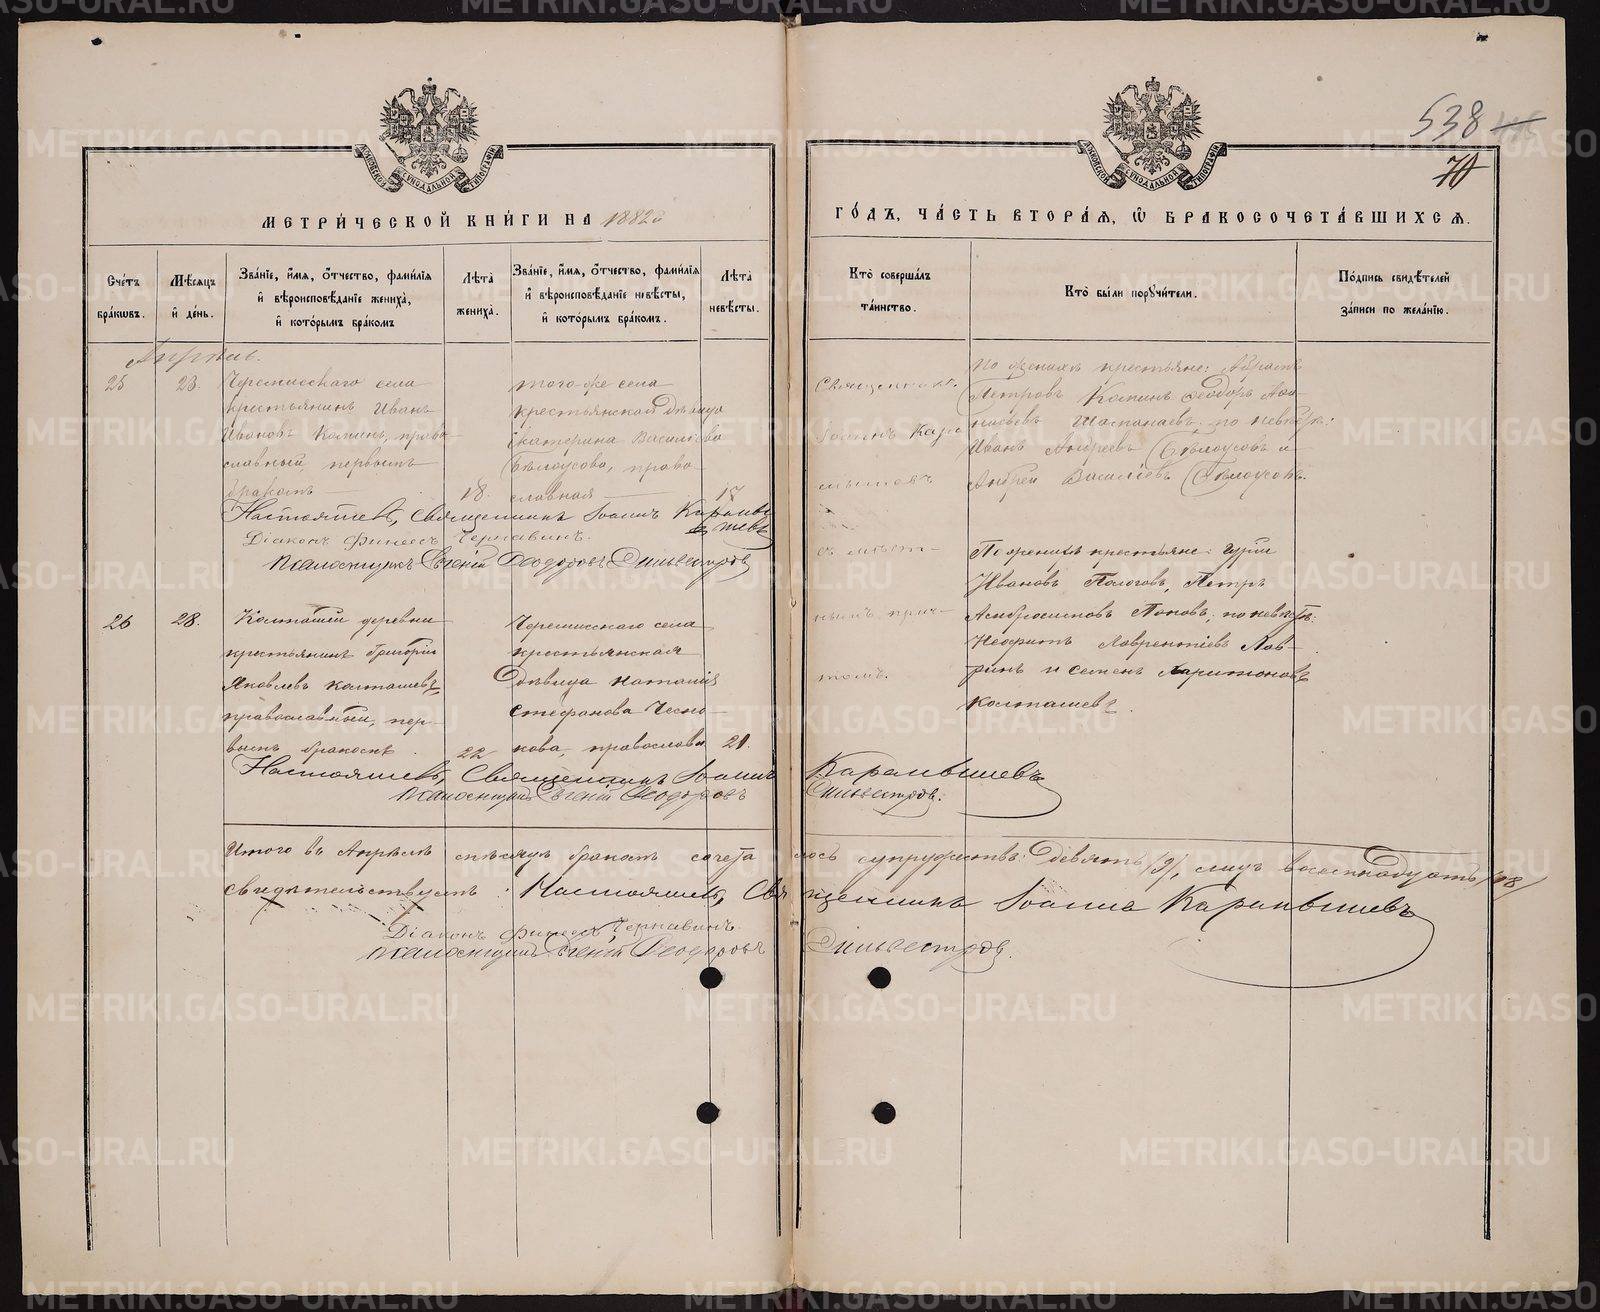 538
70
МОСКОВСКОЙ СѴНОДАЛЬНОЙ ТИПОГРАФІИ
МОСКОВСКОЙ СѴНОДАЛЬНОЙ ТИПОГРАФІИ
МЕТРИ́ЧЕСКОЙ КНИ́ГИ НА 1882й
ГО́ДЪ, ЧА́СТЬ ВТОРА́Я, Ѿ БРАКОСОЧЕТА́ВШИХСЯ.
Сче́тъ бра́кѡвъ.
Мѣ́сяцъ и҆ де́нь.
Зва́нїе, и҆́мя, ѻ҆́тчество, фами́лїя и҆ вѣроисповѣ́данїе жениха̀, и҆ кото́рымъ бра́комъ
Лѣ́та жениха̀.
Зва́нїе, и҆́мя, ѻ҆́тчество, фами́лїя и҆ вѣроисповѣ́данїе невѣ́сты, и҆ кото́рымъ бра́комъ.
Лѣ́та невѣ́сты.
Кто̀ соверша́лъ та́инство.
Кто̀ бы́ли порꙋчи́тели.
По́дпись свидѣ́телей за́писи по жела́нїю.
Апрѣль.
25
23.
Черемисскаго села
крестьянинъ Иванъ
Ивановъ Коминъ, право-
славный первымъ
бракомъ
18.
того-же села
крестьянская дѣвица
Екатерина Василіева
Бѣлоусова, право-
славная
17
Священникъ
Іоаннъ Кара
мышевъ
съ мѣст-
нымъ прич-
томъ.
По женихѣ крестьяне:
Петровъ Коминъ Ѳеодоръ
по невѣстѣ:
Иванъ Андреевъ Бѣлоусовъ и
Андрей Василіевъ Бѣлоусовъ.
Настоятель, Священникъ Іоаннъ Карамы
шевъ
Діаконъ Финеесъ Чернавинъ.
Псаломщикъ Евгеній Ѳеодоровъ Сильвестровъ
26
28.
Колташи деревни
крестьянинъ Григорій
Яковлевъ Колташевъ,
православный, пер-
вымъ бракомъ.
22
Черемисскаго села
крестьянская
дѣвица Наталія
Стефанова Чесно-
кова, православн
21.
По женихѣ крестьяне: Гурій
Ивановъ Пологовъ, Петръ
Амвросимовъ Поповъ; по невѣстѣ:
Неофитъ Лаврентіевъ Лав-
ринъ и Семенъ Харитоновъ
Колташевъ.
Настоятель, Священникъ Іоаннъ Карамышевъ
Псаломщикъ Евгеній Ѳеодоровъ Сильвестровъ.
Итого въ Апрѣлѣ мѣсяцѣ бракомъ сочета лось супружествъ: девять /9/, лицъ восемнадцать /18/
Свидѣтельствуемъ: Настоятель, Священникъ Іоаннъ Карамышевъ
Діаконъ Финеесъ Чернавинъ.
Псаломщикъ Евгеній Ѳеодоровъ Сильвестровъ.
METRIKI.GASO-URAL.RU